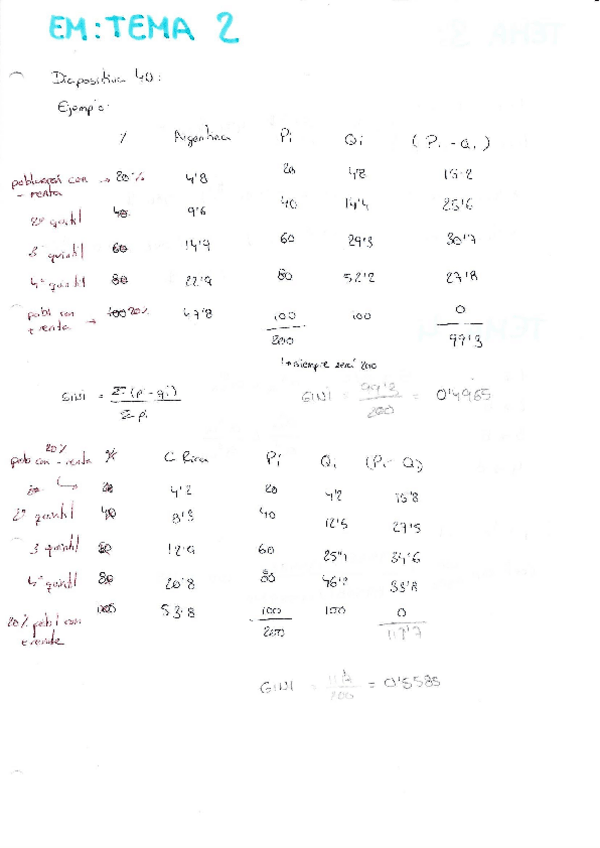 EM: TEMA 2
Diapositiva 40:
Ejemplo:
% Argentina Pi Qi (Pi - Qi)
población con - renta → 20% 4'8 20 4'8 15'2
2º quintil 40 9'6 40 14'4 25'6
3º quintil 60 14'9 60 29'3 30'7
4º quintil 80 22'9 80 52'2 27'8
pobl con + renta → 100 20% 47'8 100 100 0
200 99'3
siempre será 200
GINI = Σ(pi - qi) / Σ pi
GINI = 99'3 / 200 = 0'4965
20%
pob con - renta % C Rica Pi Qi (Pi - Qi)
20 4'2 20 4'2 15'8
2º quintil 40 8'3 40 12'5 27'5
3 quintil 60 12'9 60 25'4 34'6
4º quintil 80 20'8 80 46'2 33'8
20% pobl con + renta 100 53'8 100 100 0
200 111'7
GINI = / 200 = 0'5585